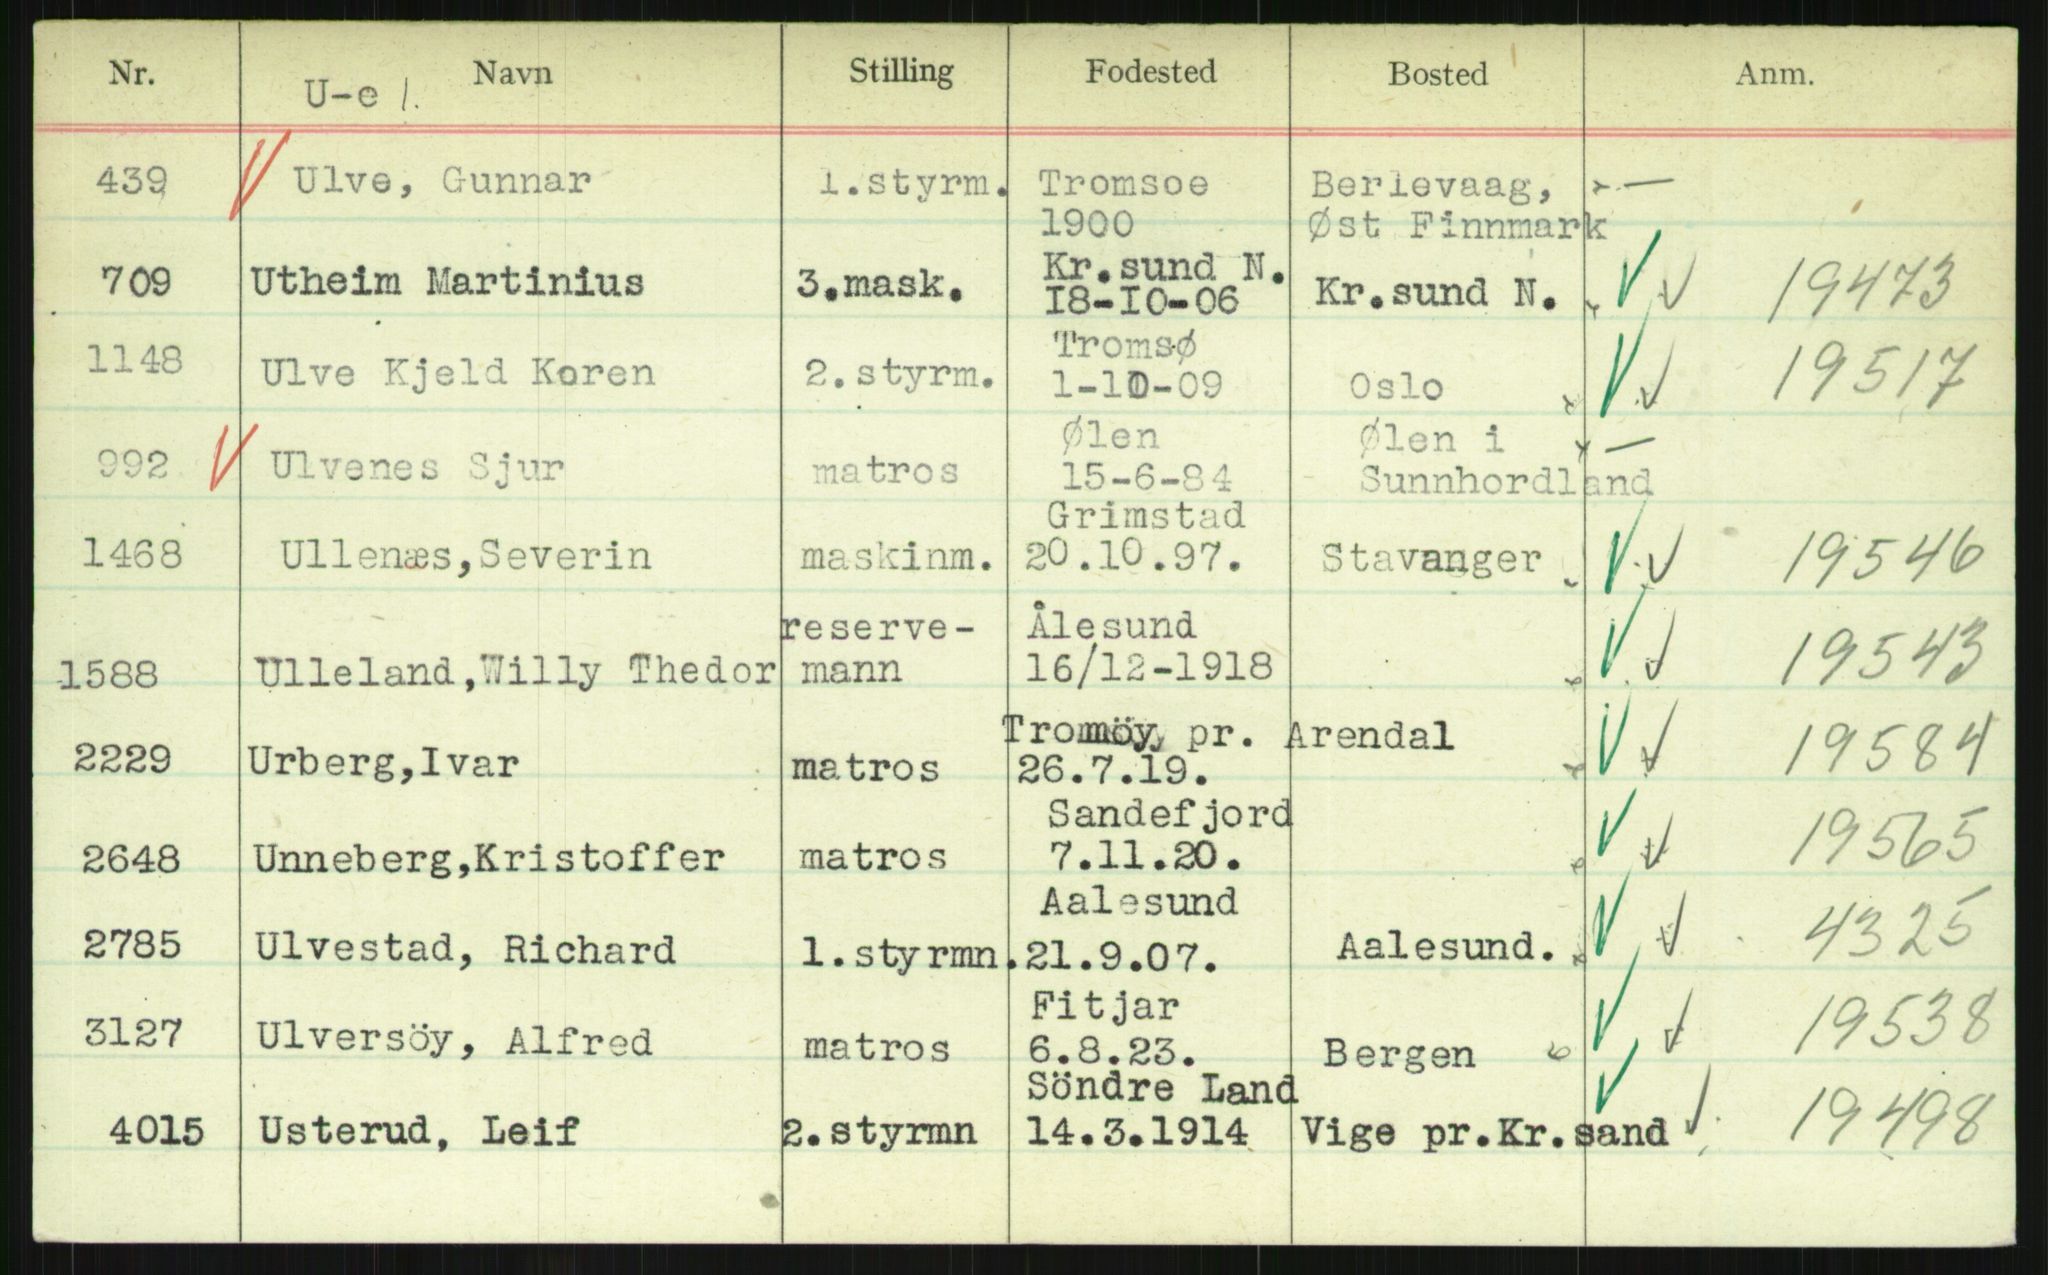 Nr. Navn Stilling Fodested Bosted Anm.
U-e 1.
439 Ulve, Gunnar 1.styrm. Tromsoe Berlevaag, —
1900 Øst Finnmark
709 Utheim Martinius 3.mask. Kr.sund N. Kr.sund N. 19473
18-10-06
1148 Ulve Kjeld Koren 2.styrm. Tromsø Oslo 19517
1-10-09
992 Ulvenes Sjur matros Ølen Ølen i —
15-6-84 Sunnhordland
1468 Ullenæs,Severin maskinm. Grimstad Stavanger 19546
20.10.97.
reserve- Ålesund
1588 Ulleland,Willy Thedor mann 16/12-1918 19543
Tromöy pr. Arendal
2229 Urberg,Ivar matros 26.7.19. 19584
Sandefjord
2648 Unneberg,Kristoffer matros 7.11.20. 19565
Aalesund
2785 Ulvestad, Richard 1.styrmn. 21.9.07. Aalesund. 4325
Fitjar
3127 Ulversöy, Alfred matros 6.8.23. Bergen 19538
Söndre Land
4015 Usterud, Leif 2.styrmn 14.3.1914 Vige pr.Kr.sand 19498